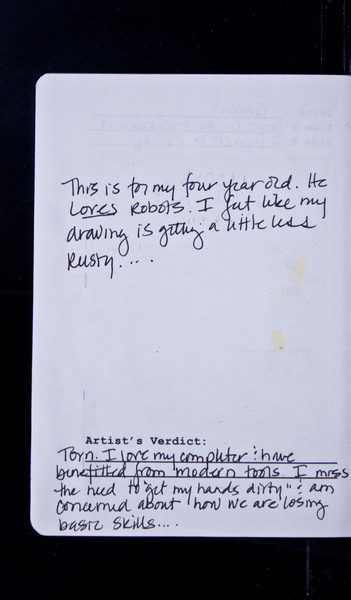 This is for my four year old. He
Loves Robots. I felt like my
drawing is getting a little less
Rusty....
Artist's Verdict:
Torn. I love my computer & have
benefitted from modern tools. I miss
the need to "get my hands dirty" & am
concerned about how we are losing
basic skills....